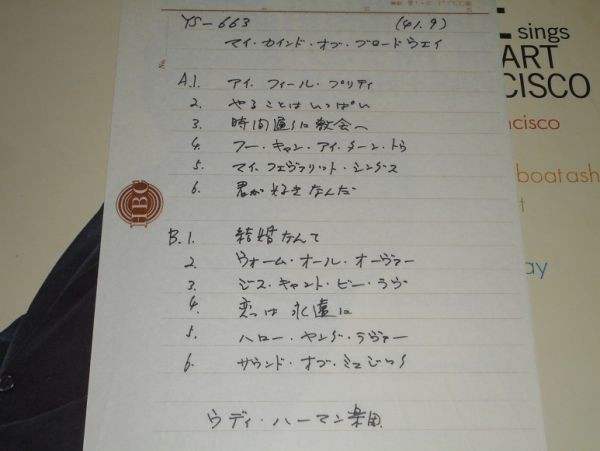 YS-663 (41.9)
マイ・カインド・オブ・ブロードウェイ
No.
A.1. アイ・フィール・プリティ
2. やることはいっぱい
3. 時間通りに教会へ
4. フー・キャン・アイ・ターン・トゥ
5. マイ・フェヴァリット・シングス
6. 君が好きなんだ
HBC
B.1. 結婚なんて
2. ウォーム・オール・オーヴァー
3. ジス・キャント・ビー・ラヴ
4. 恋は永遠に
5. ハロー・ヤング・ラヴァー
6. サウンド・オブ・ミュージック
ウディ・ハーマン楽団
sings
ART
CISCO
ncisco
boatash
ay